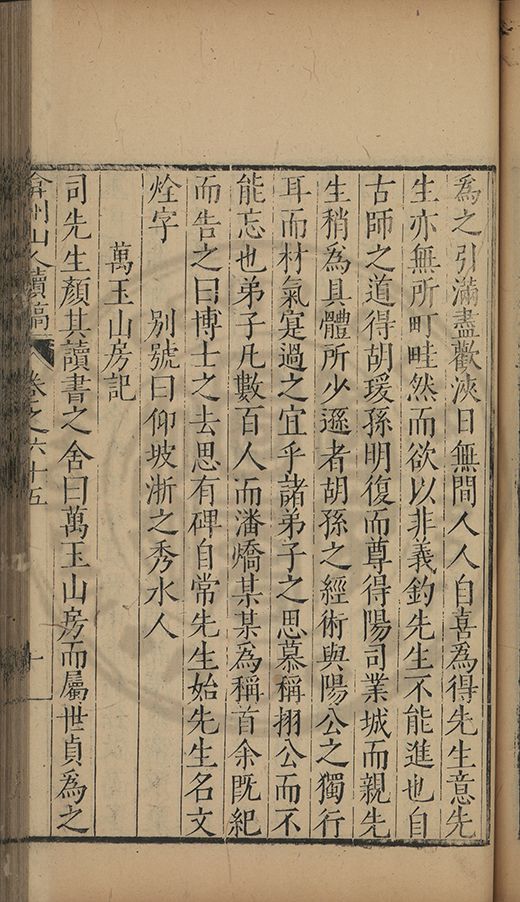 為之引滿盡歡浹日無間人人自喜為得先生意先
生亦無所町畦然而欲以非義釣先生不能進也自
古師之道得胡瑗孫明復而尊得陽司業城而親先
生稍為具體所少遜者胡孫之經術與陽公之獨行
耳而材氣寔過之宜乎諸弟子之思慕稱栩公而不
能忘也弟子凡數百人而潘燆某某為稱首余既紀
而告之曰博士之去思有碑自常先生始先生名文
烇字　　別號曰仰坡浙之秀水人
萬玉山房記
司先生顏其讀書之舍曰萬玉山房而屬世貞為之
弇州山人續稿　卷之六十五　十一